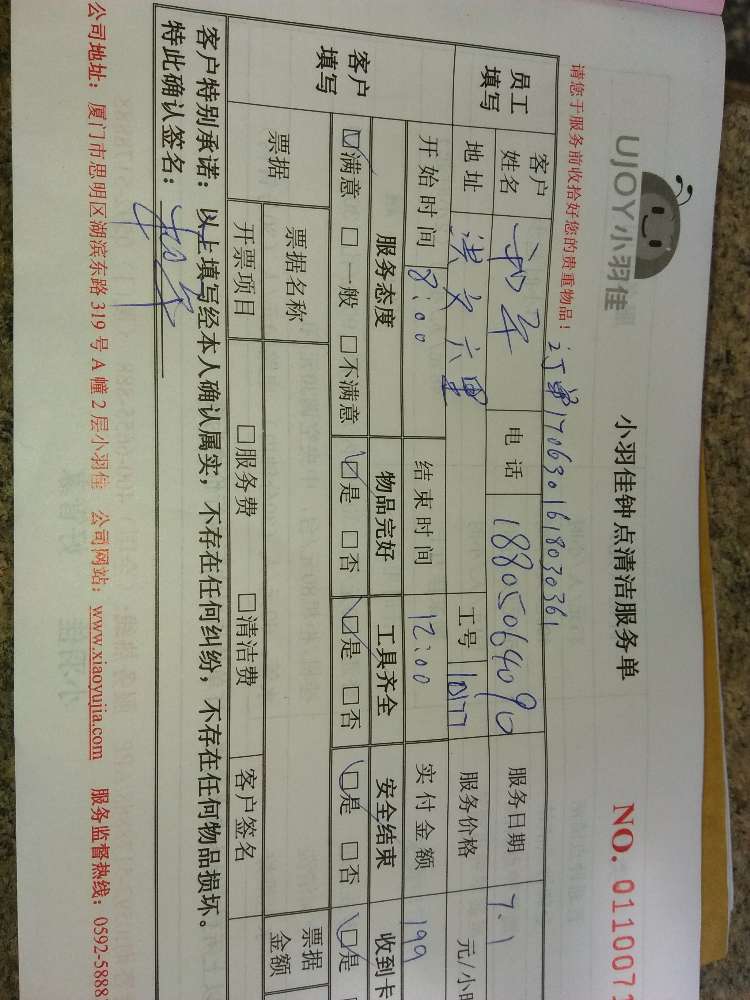 UJOY小羽佳
小羽佳钟点清洁服务单
NO. 011007
请您于服务前收拾好您的贵重物品！
订单1706301618030361
员工填写
客户姓名 电话 18805064090 服务日期 7.1
地址 洪文六里 工号 10177 服务价格 元/小时
开始时间 8:00 结束时间 12:00 实付金额 199
客户填写
服务态度 物品完好 工具齐全 安全结束 收到卡
☑满意 □一般 □不满意 ☑是 □否 ☑是 □否 ☑是 □否 ☑是
票据 票据名称 票据金额
开票项目 □服务费 □清洁费 客户签名
客户特别承诺：以上填写经本人确认属实，不存在任何纠纷，不存在任何物品损坏。
特此确认签名：
公司地址：厦门市思明区湖滨东路319号A幢2层小羽佳 公司网站：www.xiaoyujia.com 服务监督热线：0592-5888